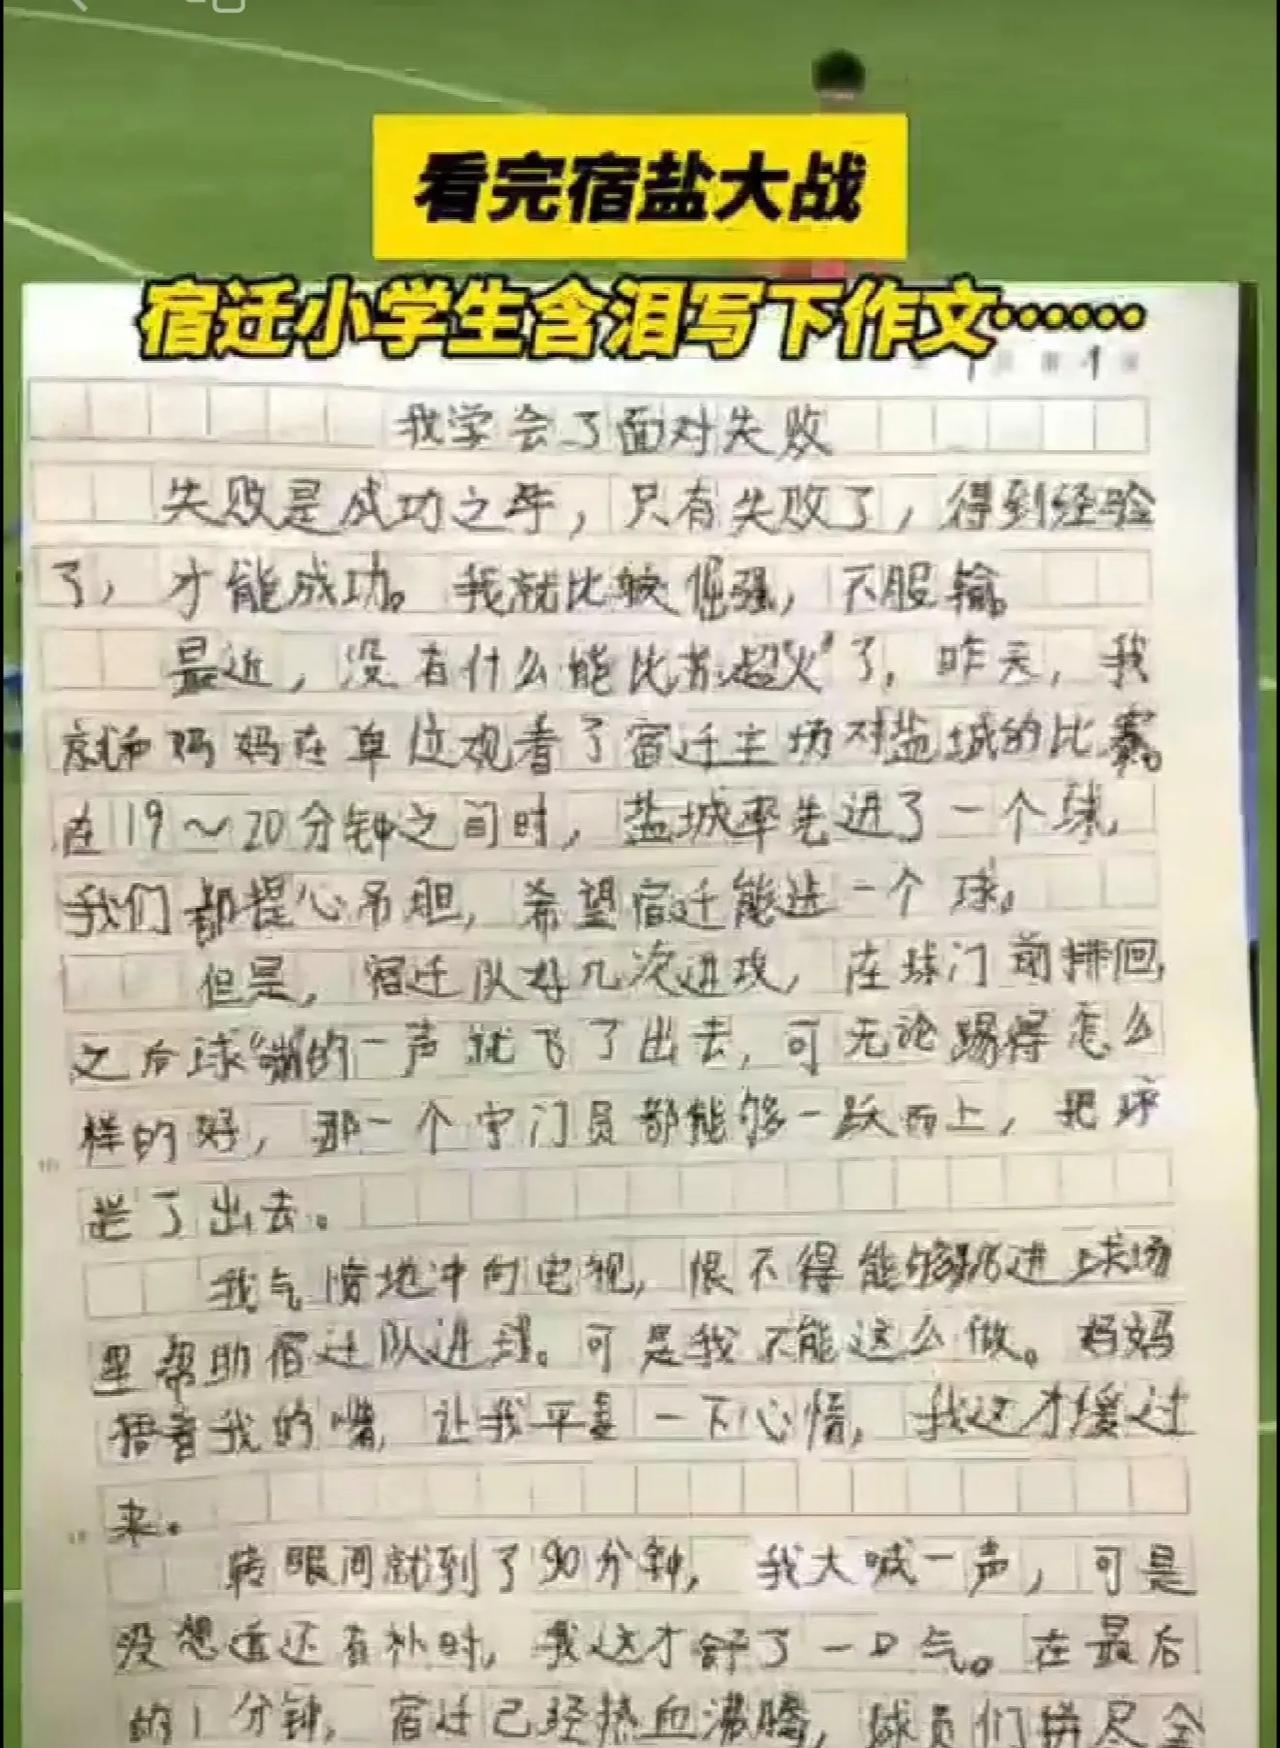 看完宿盐大战
宿迁小学生含泪写下作文……
我学会了面对失败
失败是成功之母，只有失败了，得到经验
了，才能成功。我就比较倔强，不服输。
最近，没有什么能比苏超“火”了，昨天，我
就和妈妈在单位观看了宿迁主场对盐城的比赛。
在119～20分钟之间时，盐城率先进了一个球，
我们都提心吊胆，希望宿迁能进一个球。
但是，宿迁队好几次进攻，在球门前排徊，
之后球“嘣”的一声就飞了出去，可无论踢得怎么
样的好，那一个守门员都能够一跃而上，把球
拦了出去。
我气愤地冲向电视，恨不得能够跳进球场
里帮助宿迁队进球。可是我不能这么做。妈妈
捂着我的嘴，让我平复一下心情，我这才缓过
来。
转眼间就到了90分钟，我大喊一声，可是
没想道还有补时，我这才舒了一口气。在最后
的1分钟，宿迁已经热血沸腾，球员们拼尽全